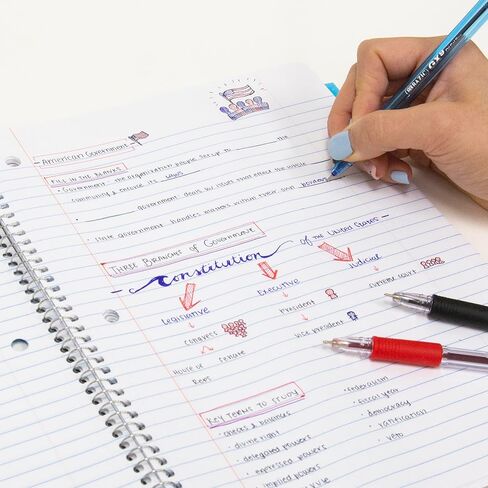 American Government
FILL IN THE BLANKS
• Government: the organization people set up to the
community & ensure its laws
government: deals w/ issues that effect the whole
• State government: handles matters within their own
THREE BRANCHES OF GOVERNMENT
Constitution of the United States
Legislative Executive Judicial
Congress President supreme court
House of Reps Senate Vice president
KEY TERMS TO STUDY
• checks & balances
• divine right
• delegated powers
• expressed powers
• implied powers
• federalism
• fiscal year
• democracy
• ratification
• veto